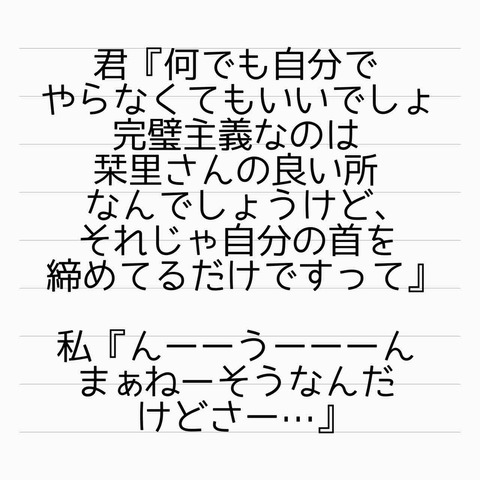 君『何でも自分で
やらなくてもいいでしょ
完璧主義なのは
栞里さんの良い所
なんでしょうけど、
それじゃ自分の首を
締めてるだけですって』
私『んーーうーーーん
まぁねーそうなんだ
けどさー…』